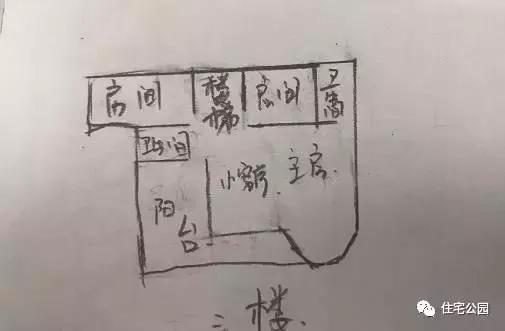 房间
楼梯
房间
卫间
卫生间
小客厅
主房
阳台
二楼
住宅公园